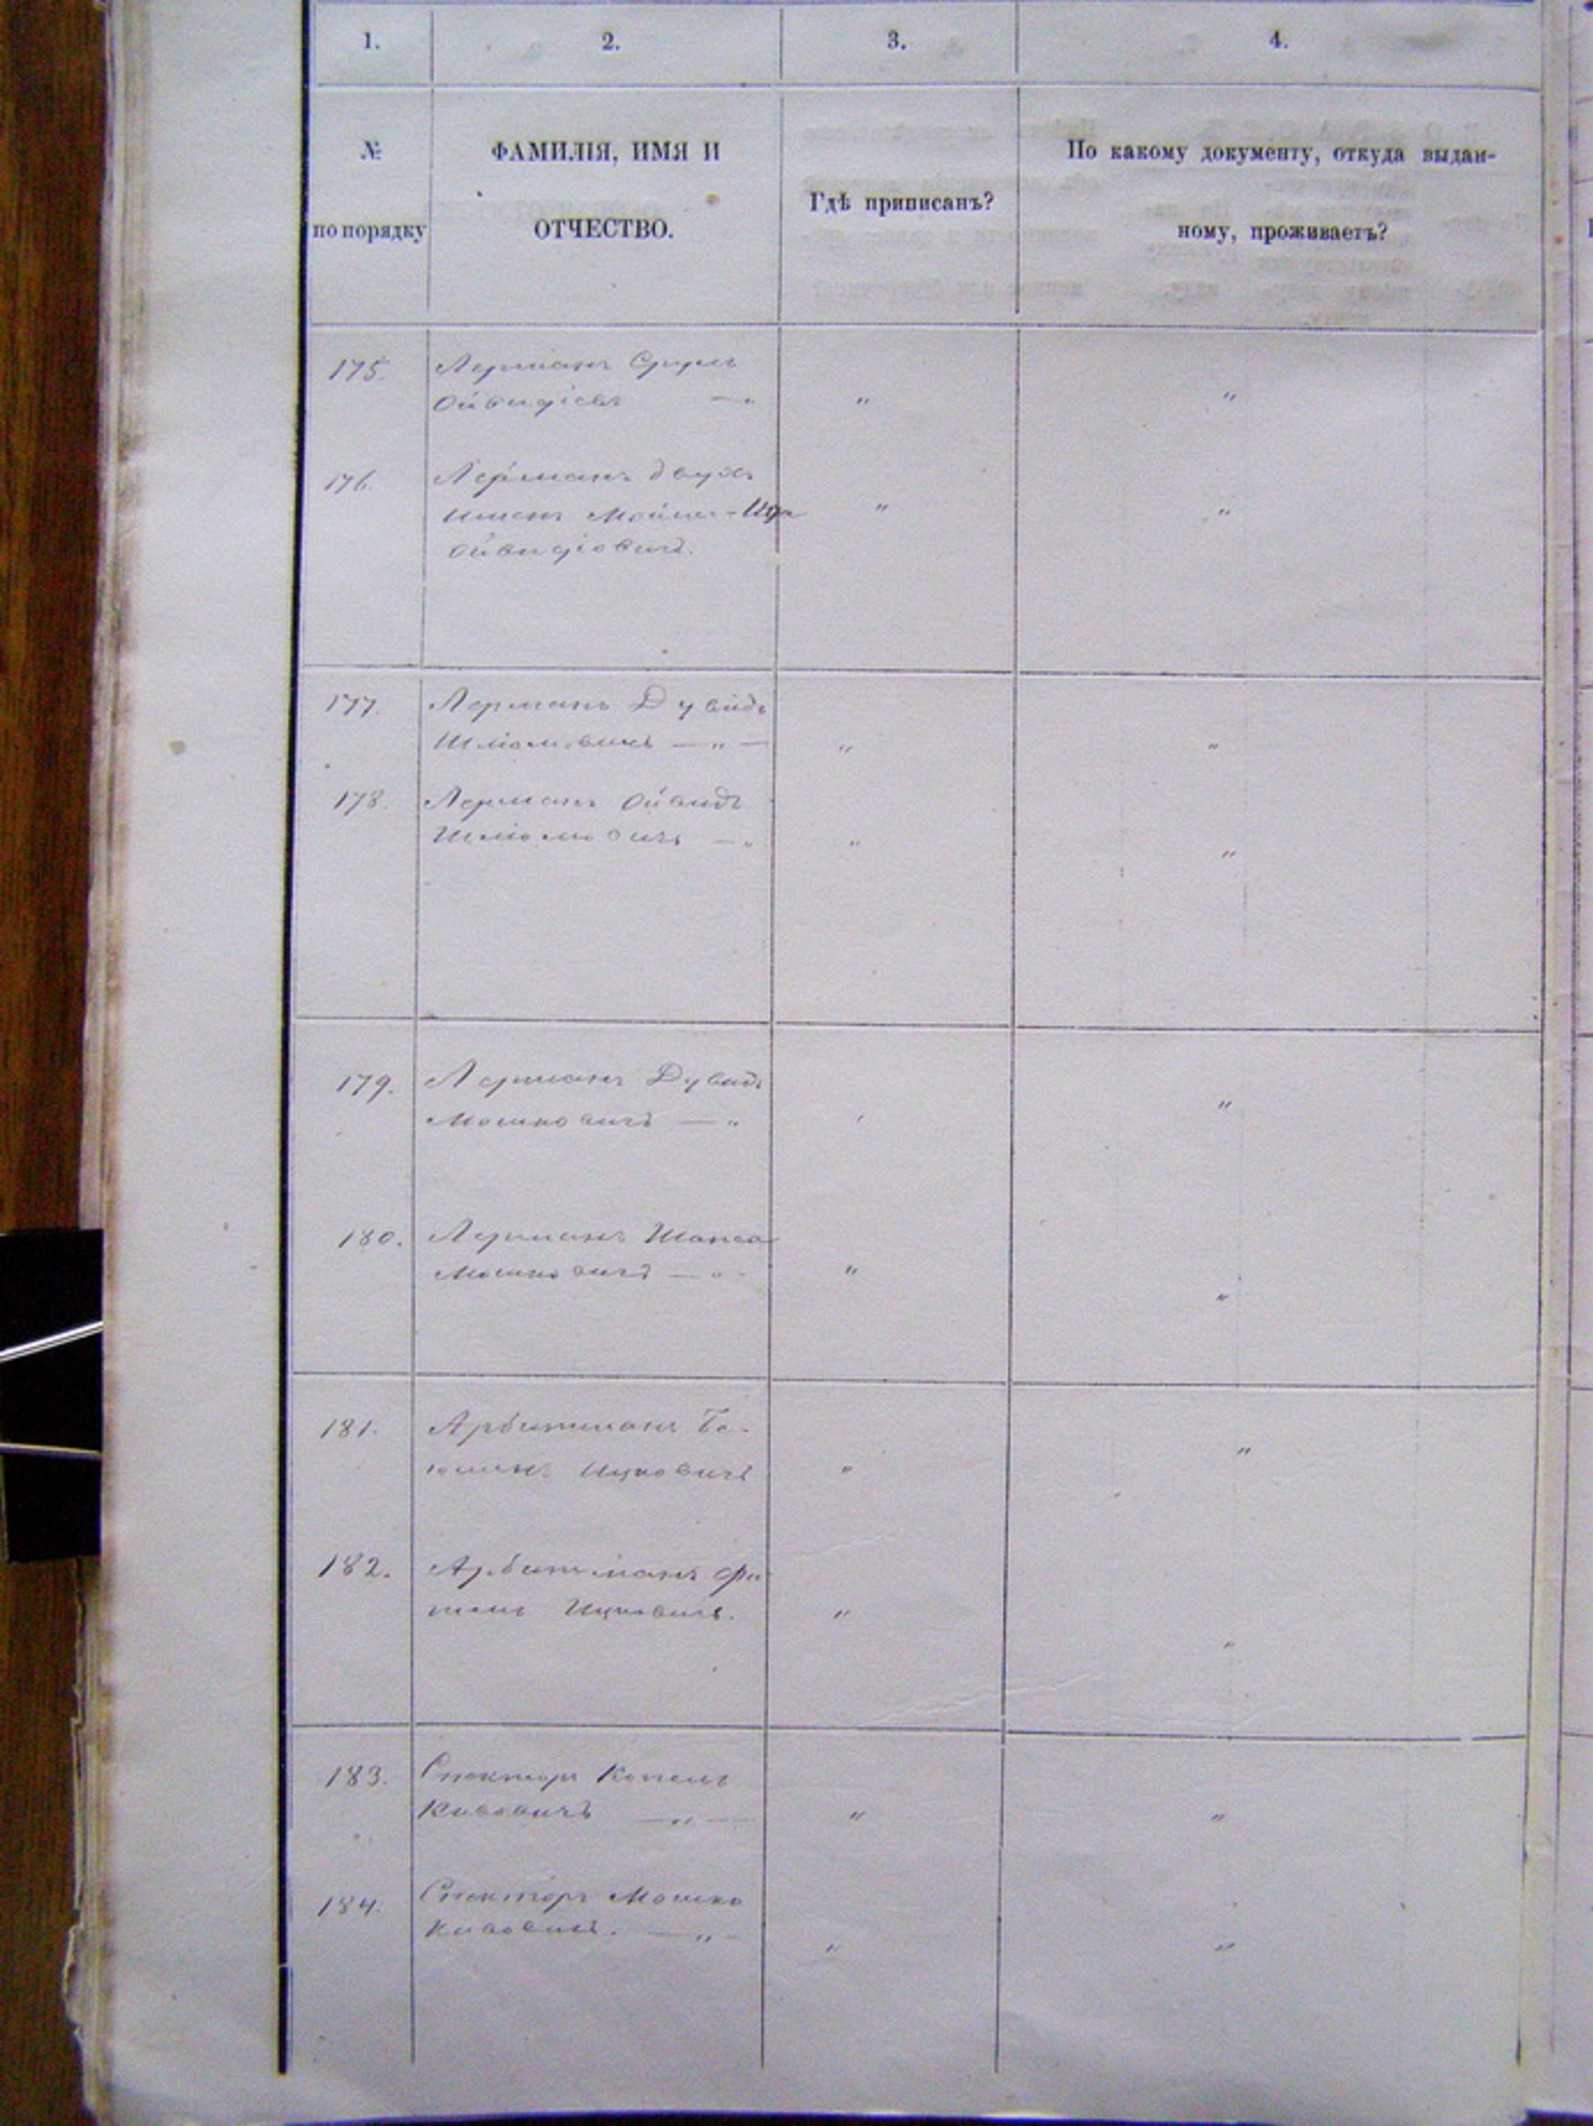 1. 2. 3. 4.
№ по порядку
ФАМИЛІЯ, ИМЯ И
ОТЧЕСТВО.
Гдѣ приписанъ?
По какому документу, откуда выдан-
ному, проживаетъ?
175. Лерманъ Сруль
Ойвидіевъ — „ „ „
176. Лерманъ двухъ
именъ Мойше- „ „
Ойвидіовичъ.
177. Лерманъ Дувидъ
Шліомовичъ — „ — „ „
178. Лерманъ Ойвидъ
Шліомовичъ — „ „ „
179. Лерманъ Дувидъ
Мошковичъ — „ „ „
180. Лерманъ Шапса
Мошковичъ — „ - „ „
181. Арбитманъ Бе-
юминъ Ицковичъ „ „
182. Арбитманъ Фи
тель Ицковичъ. „ „
183. Спекторъ Копель
Кивовичъ — „ — „ „
184. Спекторъ Мошко
Кивовичъ. — „ — „ „